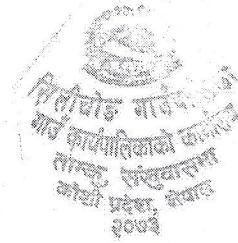 सिलीचोङ गाउँपालिका
गाउँ कार्यपालिकाको कार्यालय
ताम्कु, संखुवासभा
कोशी प्रदेश, नेपाल
२०७३